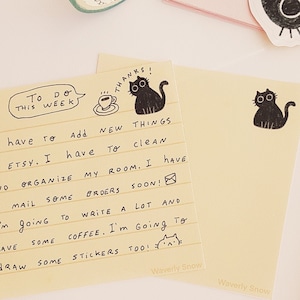 THANKS!
TO DO
THIS WEEK
HAVE TO ADD NEW THINGS
ETSY. I HAVE TO CLEAN
ORGANIZE MY ROOM. I HAVE
MAIL SOME ORDERS SOON!
I'M GOING TO WRITE A LOT AND
SOME COFFEE. I'M GOING TO
SOME STICKERS TOO!
Waverly Snow
Waverly Snow